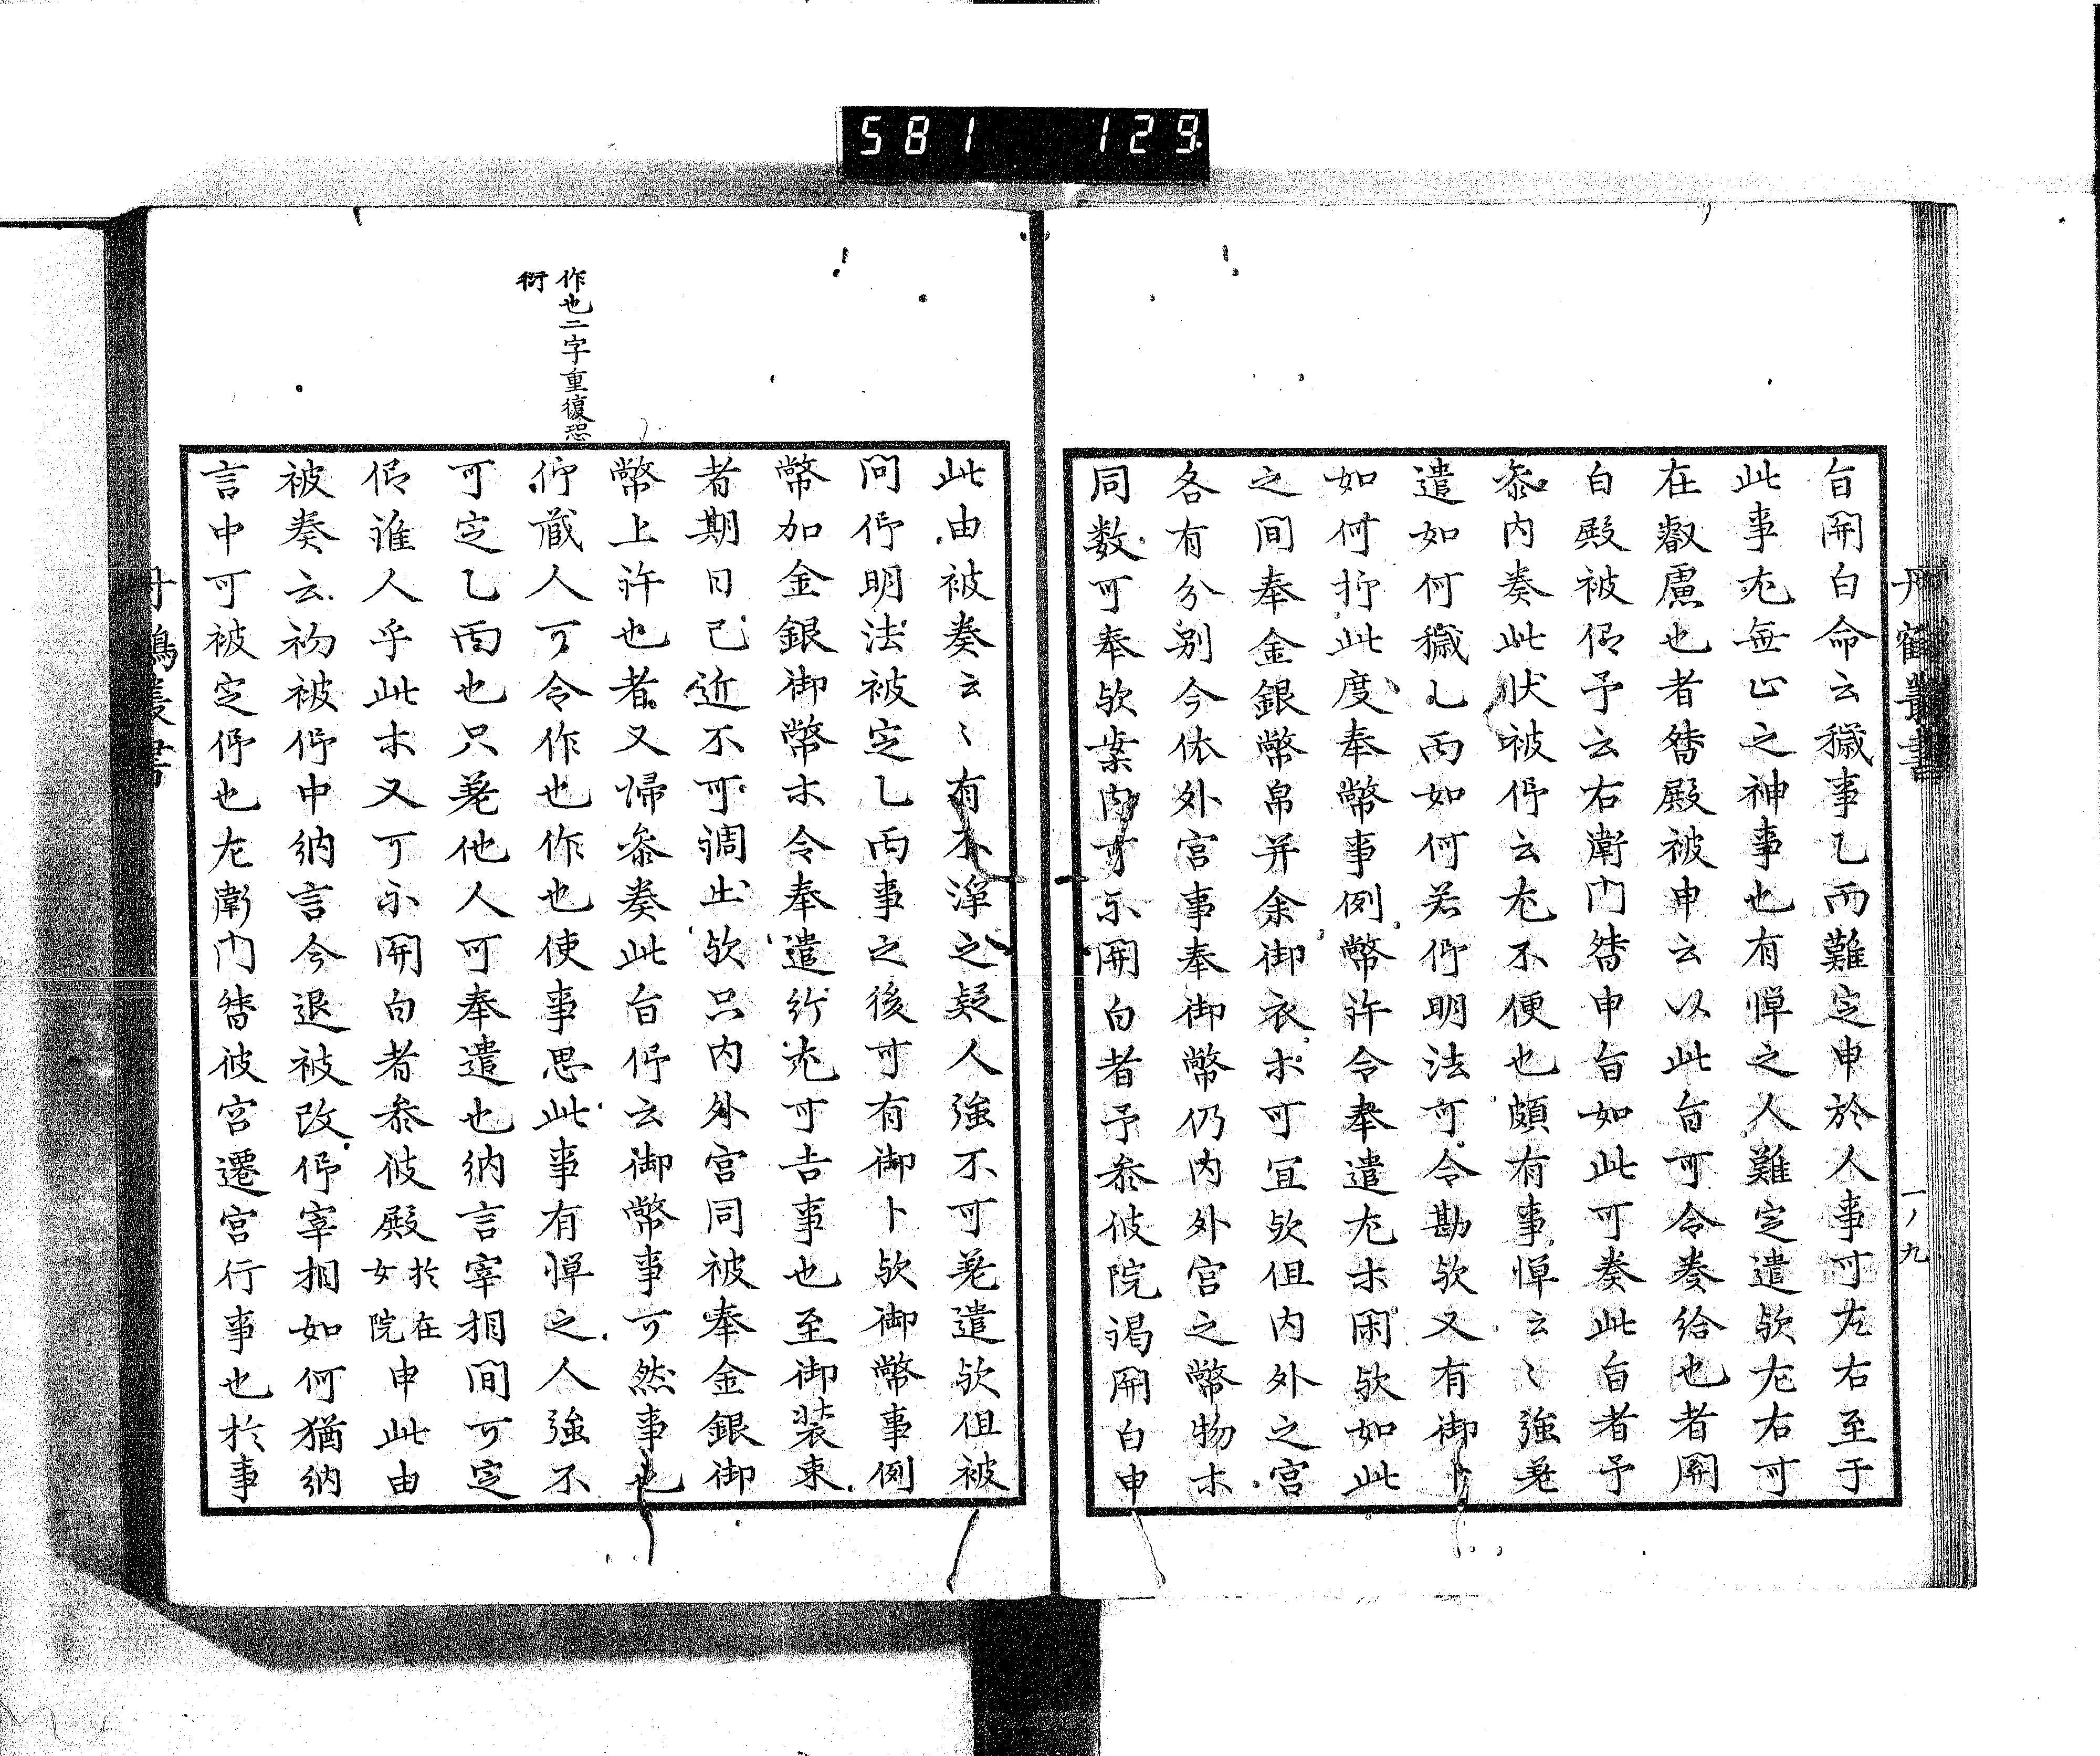 581 129
丹鶴叢書
一ノ九
旨開白命云穢事乙而難定申於人事可左右至于
此事尤無止之神事也有憚之人難定遣欤左右可
在叡慮也者督殿被申云以此旨可令奏給也者関
白殿被仰予云右衛門督申旨如此可奏此旨者予
参内奏此状被仰云尤不便也頗有事憚云〻強差
遣如何穢乙丙如何若仰明法可令勘欤又有御卜
如何抑此度奉幣事例幣許令奉遣尤木閑欤如此
之間奉金銀幣帛并余御衣木可宜欤但内外之宮
各有分別今依外宮事奉御幣仍内外宮之幣物木
同数可奉欤案内可示関白者予参彼院謁関白申
此由被奏云〻有不浄之疑人強不可差遣欤但被
問仰明法被定乙丙事之後可有御卜欤御幣事例
幣加金銀御幣木令奉遣給尤可吉事也至御装束
者期日已近不可調出欤只内外宮同被奉金銀御
幣上許也者又帰参奏此旨仰云御幣事可然事也
仰蔵人可令作也作也使事思此事有憚之人強不
可定乙丙也只差他人可奉遣也納言宰相間可定
仰誰人乎此木又可示関白者参彼殿於在女院申此由
被奏云初被仰中納言今退被改仰宰相如何猶納
言中可被定仰也左衛門督彼宮遷宮行事也於事
作也二字重復恐
衍
丹鶴叢書